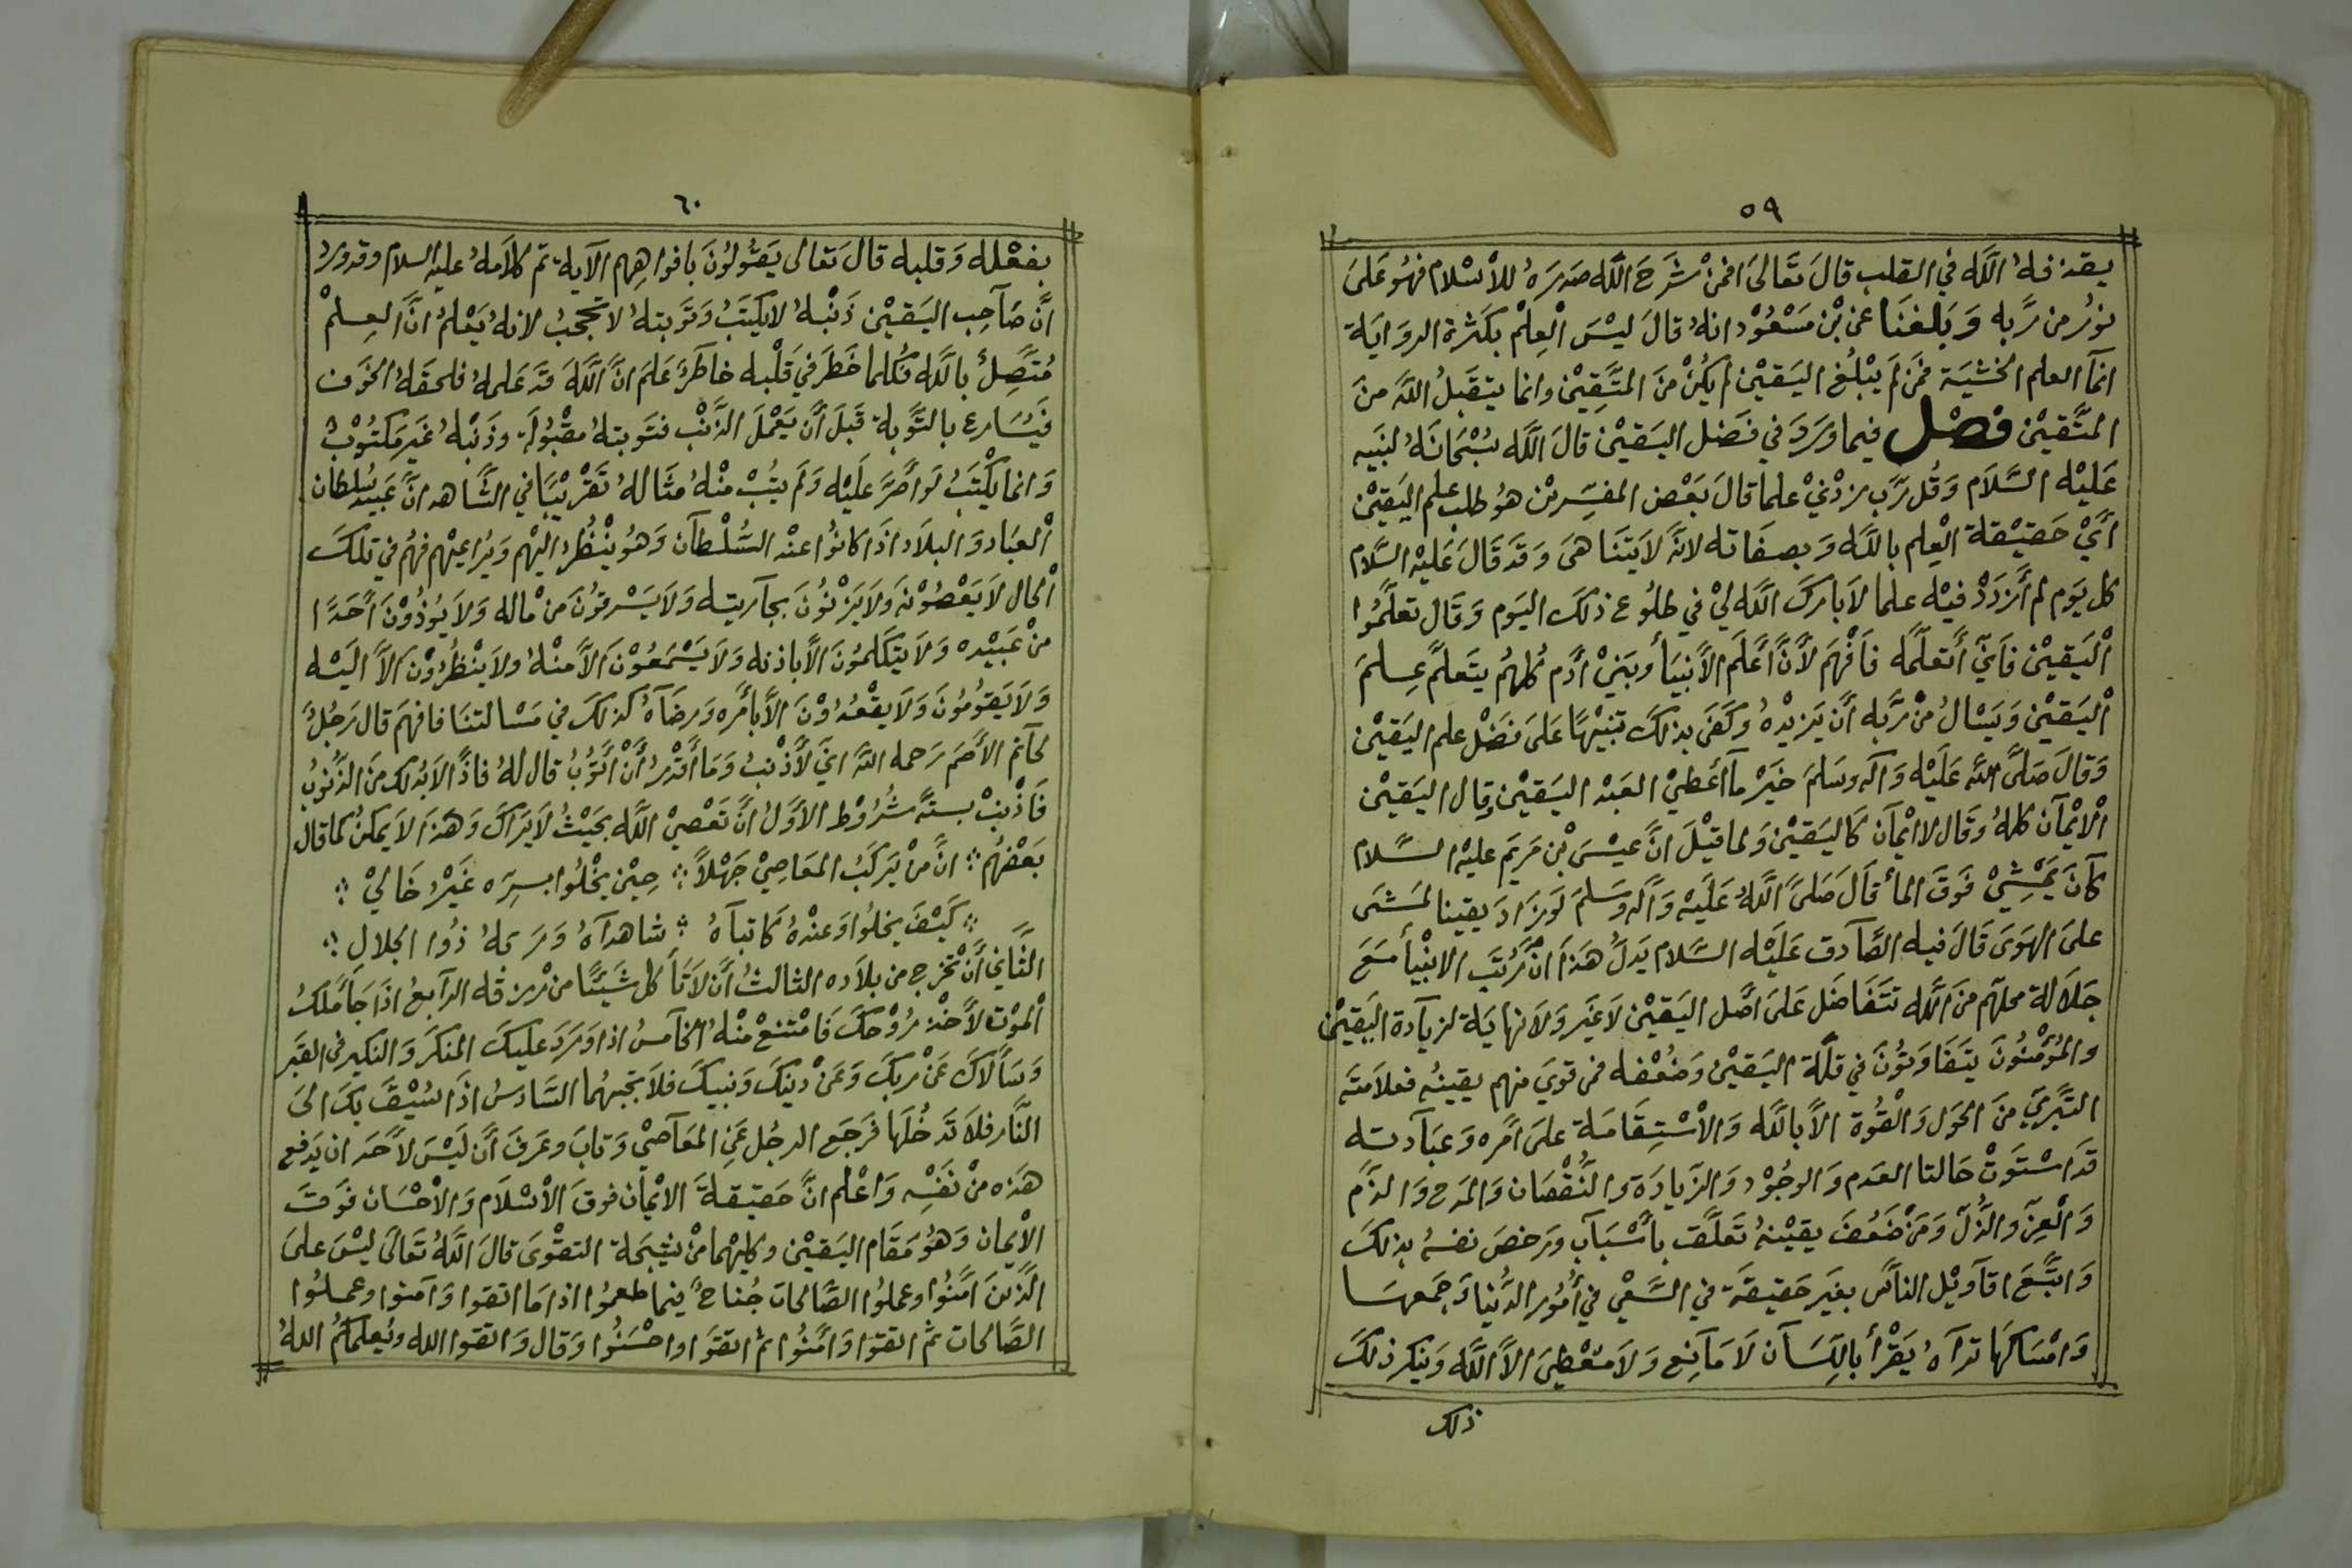 ٥٩
يقذفه الله في القلب قال تعالى افمن شرح الله صدره للاسلام فهو على
نور من ربه وبلغنا عن بن مسعود انه قال ليس العلم بكثرة الرواية
انما العلم الخشية فمن لم يبلغ اليقين لم يكن من المتقين وانما يتقبل الله من
المتقين فصل فيما ورد في فضل اليقين قال الله سبحانه لنبيه
عليه السلام وقل رب زدني علما قال بعض المفسرين هو طلب علم اليقين
أي حقيقة العلم بالله وبصفاته لانه لا يتناهى وقد قال عليه السلام
كل يوم لم أزدد فيه علما لا بارك الله لي في طلوع ذلك اليوم وقال تعلموا
اليقين فاني أتعلمه فافهم لأن أعلم الأنبياء وبني أدم كلهم يتعلم علم
اليقين ويسال من ربه أن يزيده وكفى بذلك تنبيها على فضل علم اليقين
وقال صلى الله عليه وآله وسلم خير ما أعطي العبد اليقين وقال اليقين
الايمان كله وقال لا ايمان كاليقين ولما قيل ان عيسى بن مريم عليه السلام
كان يمشي فوق الماء قال صلى الله عليه وآله وسلم لو زاد يقينا لمشى
على الهوى قال فيه الصادق عليه السلام يدل هذا ان مرتب الانبياء مع
جلالة محلهم من الله تتفاضل على اصل اليقين لا غير ولا نهاية لزيادة اليقين
والمؤمنون يتفاوتون في قلة اليقين وضعفه فمن قوي منهم يقينه فعلامته
التبري من الحول والقوة الا بالله والاستقامة على امره وعبادته
قد استوت حالتا العدم والوجود والزيادة والنقصان والمدح والذم
والعز والذل ومن ضعف يقينه تعلق بأسباب ورخص نفسه بذلك
واتبع اقاويل الناس بغير حقيقة في السعي في أمور الدنيا وجمعها
وامساكها تراه يقرأ بالسان لا مانع ولا معطي الا الله وينكر ذلك
ذلك
٦٠
بفعله وقلبه قال تعالى يقولون بافواههم الآية تم كلامه عليه السلام وقد ورد
ان صاحب اليقين ذنبه لا يكتب وتوبته لا تحجب لانه يعلم ان العلم
متصل بالله فكلما خطر في قلبه خاطر علم ان الله قد علمه فلحقه الخوف
فيسارع بالتوبة قبل أن يعمل الذنب فتوبته مقبولة وذنبه غير مكتوب
وانما يكتب لو اصر عليه ولم يتب منه مثاله تقريبا في الشاهد ان عبيد سلطان
العباد والبلاد اذا كانوا عند السلطان وهو ينظر اليهم ويراعيهم فهم في تلك
الحال لا يعصونه ولا يزنون بجاريته ولا يسرقون من ماله ولا يوذون أحدا
من عبيده ولا يتكلمون الا باذنه ولا يسمعون الا منه ولا ينظرون الا اليه
ولا يقومون ولا يقعدون الا بأمره ورضاه كذلك في مسالتنا فافهم قال رجل
لحاتم الأصم رحمه الله اني لأذنب وما أقدر أن أتوب قال له فاذا لا بد لك من الذنوب
فأذنب بستة شروط الأول أن تعصي الله بحيث لا يراك وهذا لا يمكن كما قال
بعضهم ؞ ان من يركب المعاصي جهلا ؞ حين يخلوا بسره غير خالي ؞
؞ كيف يخلوا وعنده كاتباه ؞ شاهداه وربه ذوا الجلال ؞
الثاني أن تخرج من بلاده الثالث أن لا تاكل شيئا من رزقه الرابع اذا جا ملك
الموت لأخذ روحك فامتنع منه الخامس اذا ورد عليك المنكر والنكير في القبر
وسألاك عن ربك وعن دينك ونبيك فلا تجبهما السادس اذا سيق بك الى
النار فلا تدخلها فرجع الرجل عن المعاصي وتاب وعرف أن ليس لأحد ان يدفع
هذه من نفسه واعلم ان حقيقة الايمان فوق الاسلام والاحسان فوق
الايمان وهو مقام اليقين وكليهما من نتيجة التقوى قال الله تعالى ليس على
الذين امنوا وعملوا الصالحات جناح فيما طعموا اذا ما اتقوا وآمنوا وعملوا
الصالحات ثم اتقوا وامنوا ثم اتقوا واحسنوا وقال واتقوا الله ويعلمكم الله